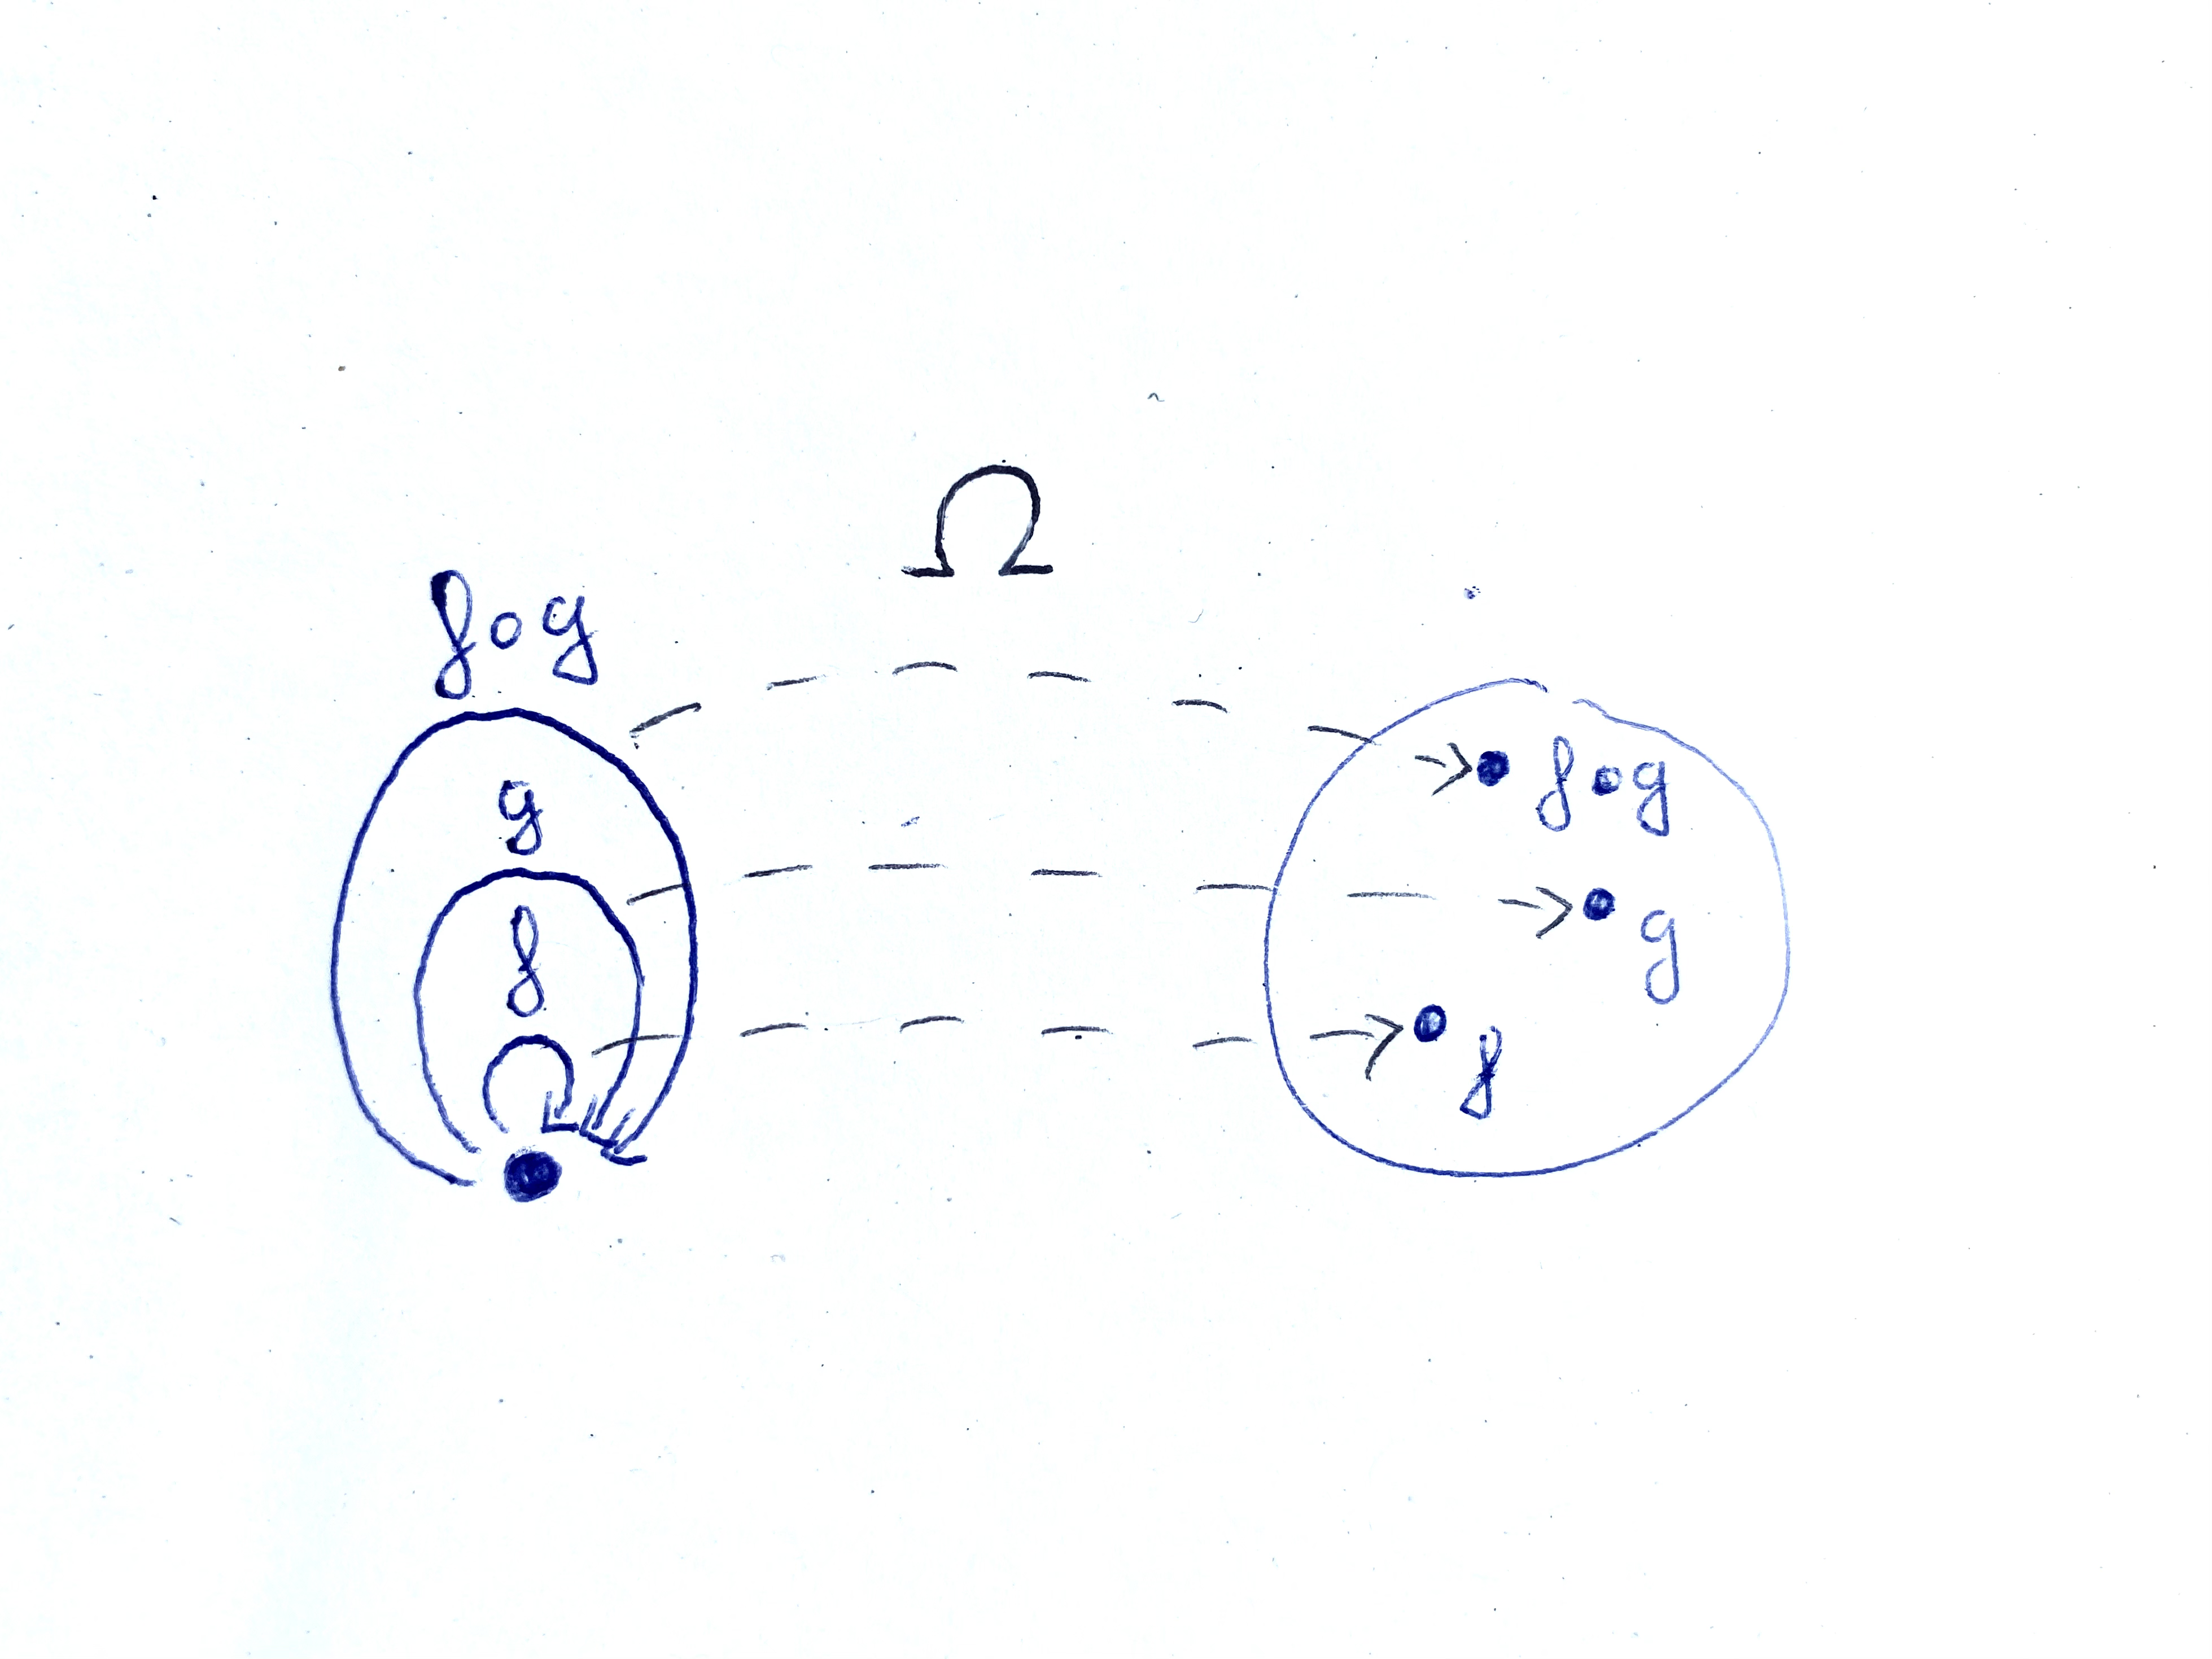 Ω
f∘g
g
f
f∘g
g
f